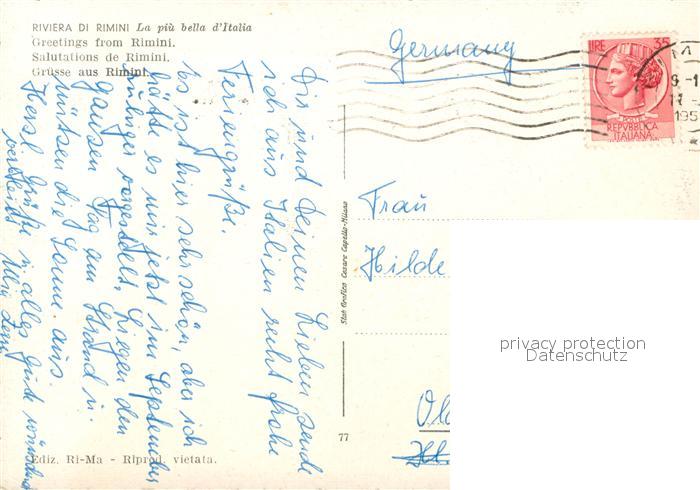 RIVIERA DI RIMINI La più bella d'Italia
Greetings from Rimini.
Salutations de Rimini.
Grüsse aus Rimini.
Dir und Deinen Lieben sende
ich aus Italien recht frohe
Feriengrüße.
Es ist hier sehr schön, aber ich
hätte es mir jetzt im September
ruhiger vorgestellt. Liegen den
ganzen Tag am Strand u.
nützen die Sonne aus.
Herzl. Grüße u. alles Gute wünschend
verbleibt
Ediz. Ri-Ma - Riprod. vietata.
77
Stab Grafico Cesare Capello-Milano
Germany
LIRE 35
POSTE
REPVBBLICA
ITALIANA
195
Frau
Hilde
privacy protection
Datenschutz
Ol